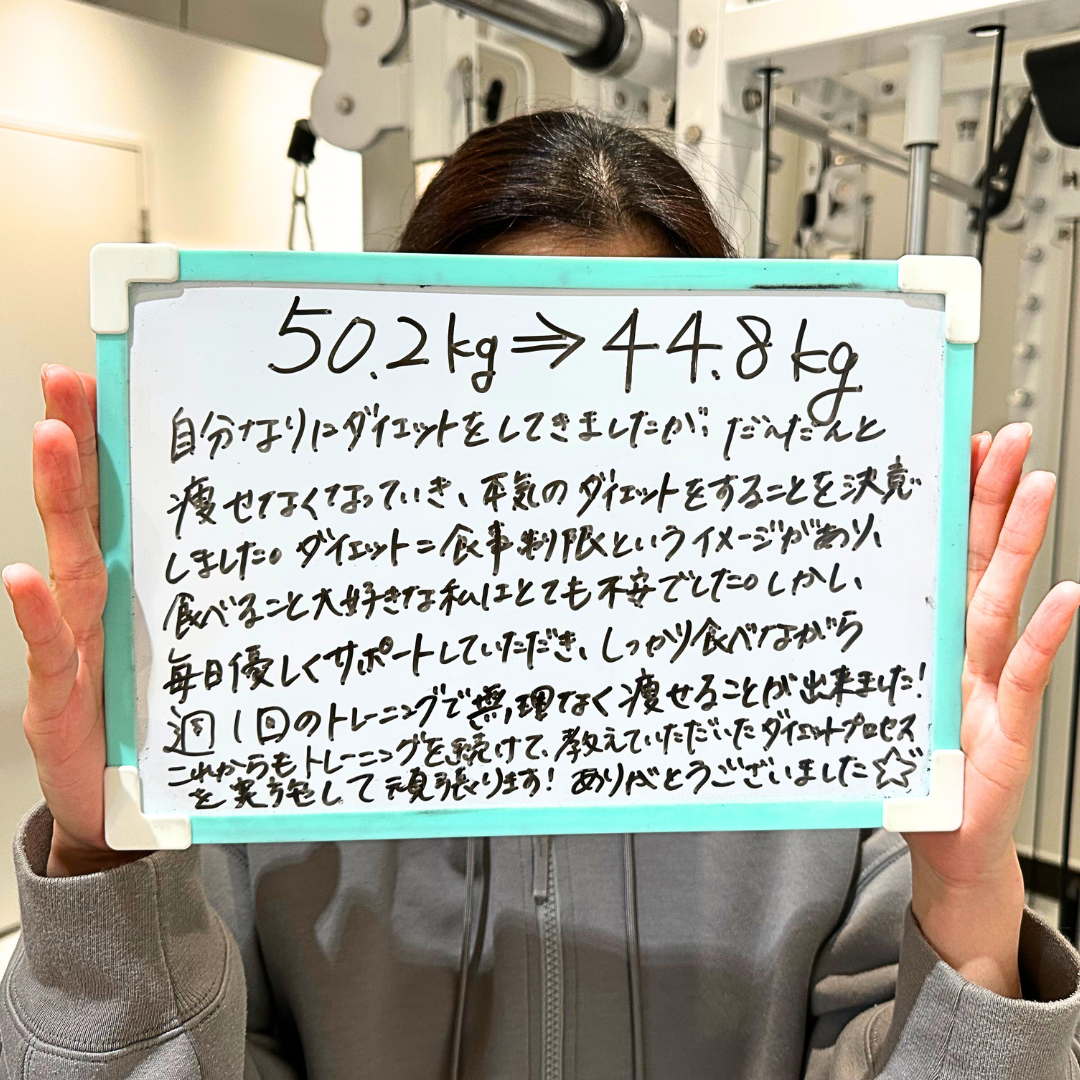 50.2kg⇒44.8kg
自分なりにダイエットをしてきましたが、だんだんと
痩せなくなっていき、本気のダイエットをすることを決意
しました。ダイエット=食事制限というイメージがあり、
食べること大好きな私はとても不安でした。しかし、
毎日優しくサポートしていただき、しっかり食べながら
週1回のトレーニングで無理なく痩せることが出来ました!
これからもトレーニングを続けて、教えていただいたダイエットプロセス
を実施して頑張ります!ありがとうございました☆